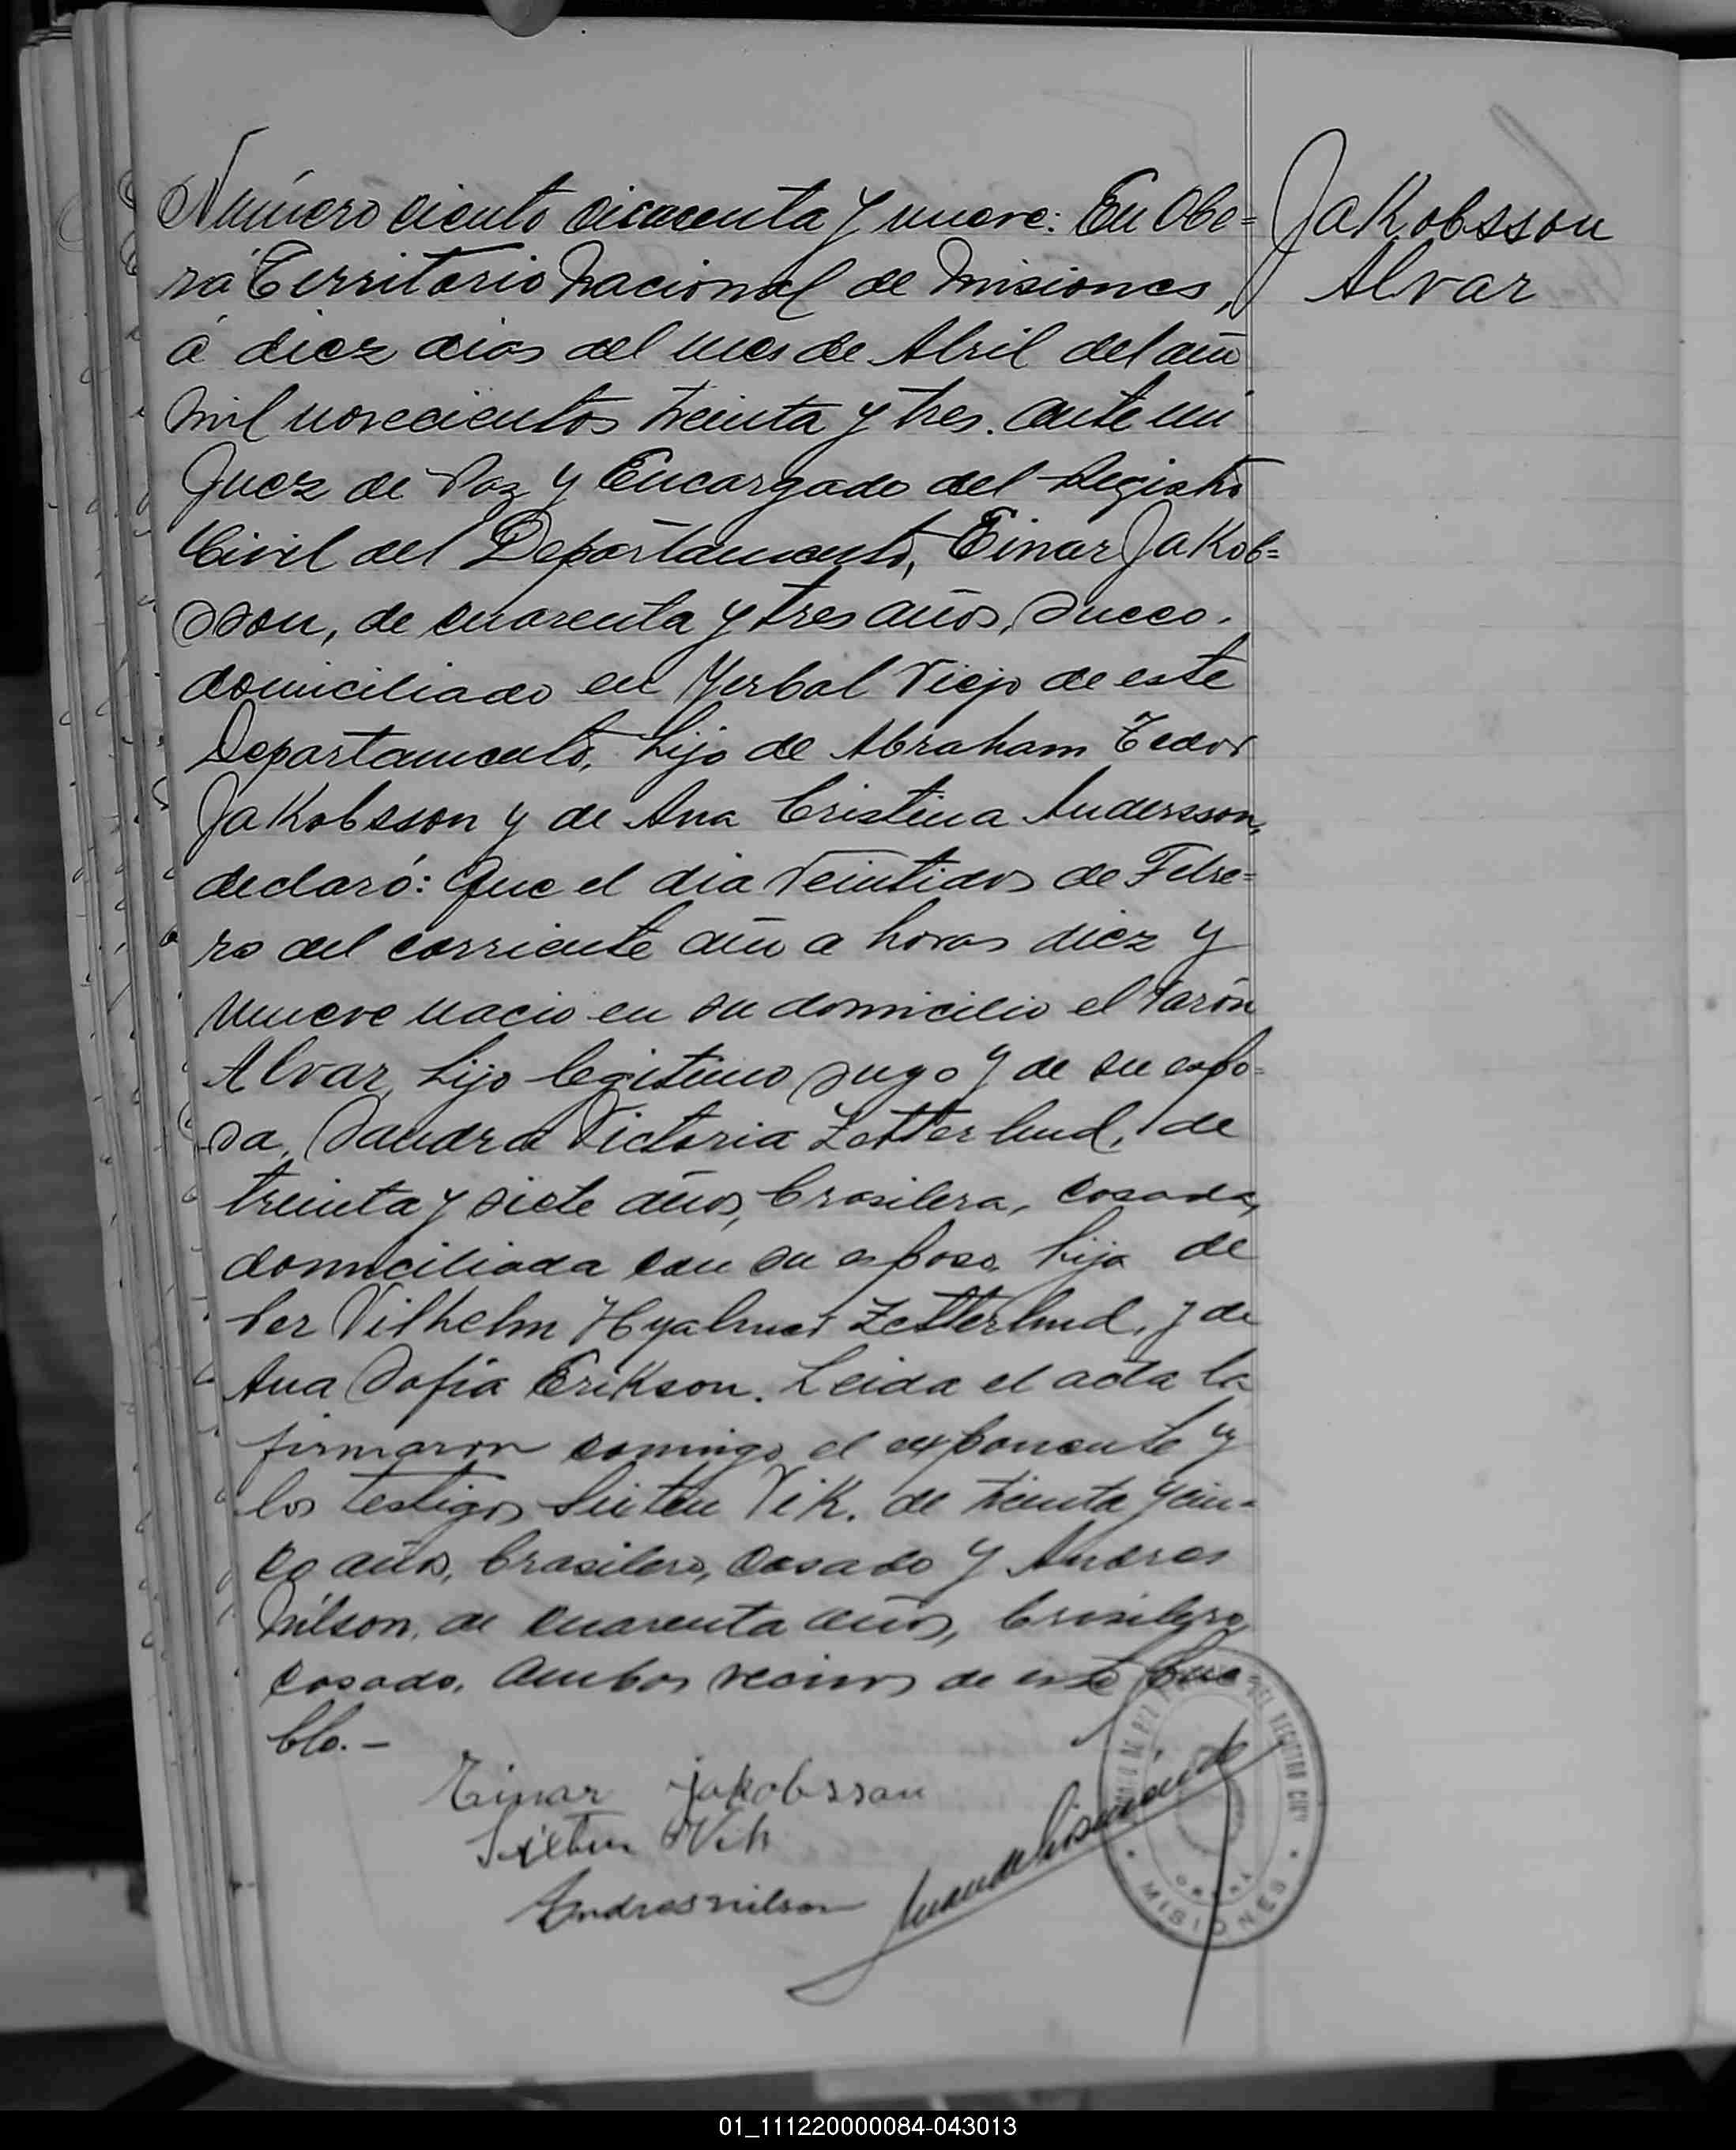 Número ciento cincuenta y nueve: En Obe= Jakobsson
rá Territorio Nacional de Misiones, Alvar
á diez dias del mes de Abril del año
mil novecientos treinta y tres. ante mi
Juez de Paz y Encargado del Registro
Civil del Departamento, Einar Jakob=
sson, de cuarenta y tres años, sueco.
domiciliado en Yerbal Viejo de este
Departamento, hijo de Abraham Teodor
Jakobsson y de Ana Cristina Andersson,
declaró: Que el dia veintidos de Febre=
ro del corriente año a horas diez y
nueve nacio en su domicilio el varón
Alvar, hijo legitimo suyo y de su espo=
sa, Sandra Victoria Zetterlund, de
treinta y siete años, brasilera, casada,
domiciliada con su esposo, hija de
Per Vilhelm Hyalmar Zetterlund, y de
Ana Sofia Erikson. Leida el acta la
firmaron comingo, el exponente y
los testigos Vik. de treinta y cin=
co años, brasilero, casado y Andres
Nilson, de cuarenta años, brasilero,
casado, ambos vecinos de este pue=
blo.-
Einar Jakobsson
Andres nilson
DEL REGISTRO CIVIL
MISIONES
01_111220000084-043013